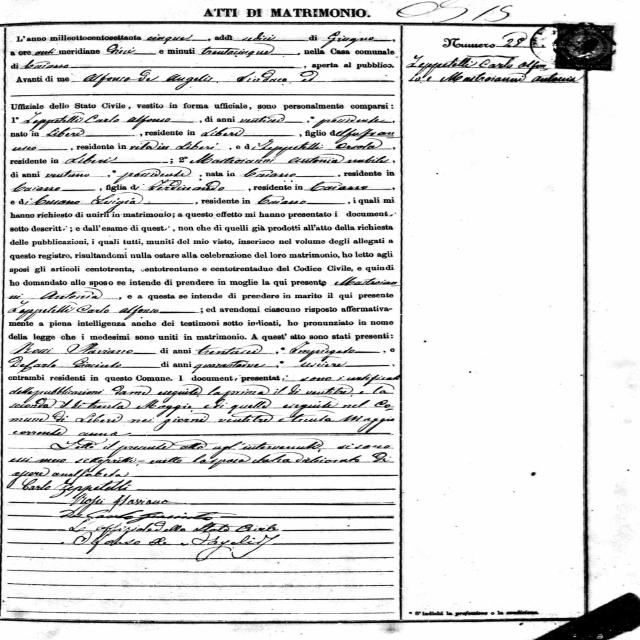 ATTI DI MATRIMONIO.
L'anno milleottocentosettanta cinque, addì sedici di Giugno,
a ore anti meridiane Dieci e minuti trentacinque, nella Casa comunale
di Caiano, aperta al pubblico.
Avanti di me Alfonso de Angelis Sindaco ed
Uffiziale dello Stato Civile, vestito in forma uffiziale, sono personalmente comparsi:
1° Zeppetelli Carlo Alfonso, di anni ventisei, * possidente,
nato in Liberi, residente in Liberi, figlio di
, residente in vita in Liberi e di Zeppetelli
residente in Liberi; 2° Mastroianni Antonia nubile,
di anni ventuno, * possidente, nata in Caiano, residente in
Caiano, figlia di Ferdinando, residente in Caiano,
e di Cusano Luigia, residente in Caiano, i quali mi
hanno richiesto di unirli in matrimonio; a questo effetto mi hanno presentato i document
sotto descritti; e dall'esame di quest, non che di quelli già prodotti all'atto della richiesta
delle pubblicazioni, i quali tutti, muniti del mio visto, inserisco nel volume degli allegati a
questo registro, risultandomi nulla ostare alla celebrazione del loro matrimonio, ho letto agli
sposi gli articoli centotrenta, centotrentuno e centotrentadue del Codice Civile, e quindi
ho domandato allo sposo se intende di prendere in moglie la qui presente Mastroian
ni Antonia, e a questa se intende di prendere in marito il qui presente
Zeppetelli Carlo Alfonso; ed avendomi ciascuno risposto affermativa-
mente a piena intelligenza anche dei testimoni sotto indicati, ho pronunziato in nome
della legge che i medesimi sono uniti in matrimonio. A quest'atto sono stati presenti:
Rossi Flaviano di anni trentasei, * Impiegato, e
DeCarlo Giacinto di anni quarantuno, * usciere,
entrambi residenti in questo Comune. I document presentat sono i certificati
delle pubblicazioni da me eseguite la prima il dì ventitre, e la
seconda il dì trenta Maggio, e di quelle eseguite nel Co
mune di Liberi nei giorni ventitre e trenta Maggio
corrente anno.
Letto il presente atto agl'intervenuti, si sono
essi meco sottoscritti, meno la sposa
essere analfabeta
Carlo Zeppetelli
Rossi Flaviano
De Carlo Giacinto
L'Uffiziale dello Stato Civile
Alfonso de Angelis
Numero 28
Zeppetelli Carlo Alfon
so, e Mastroianni Antonia
* S'indichi la professione o la condizione.